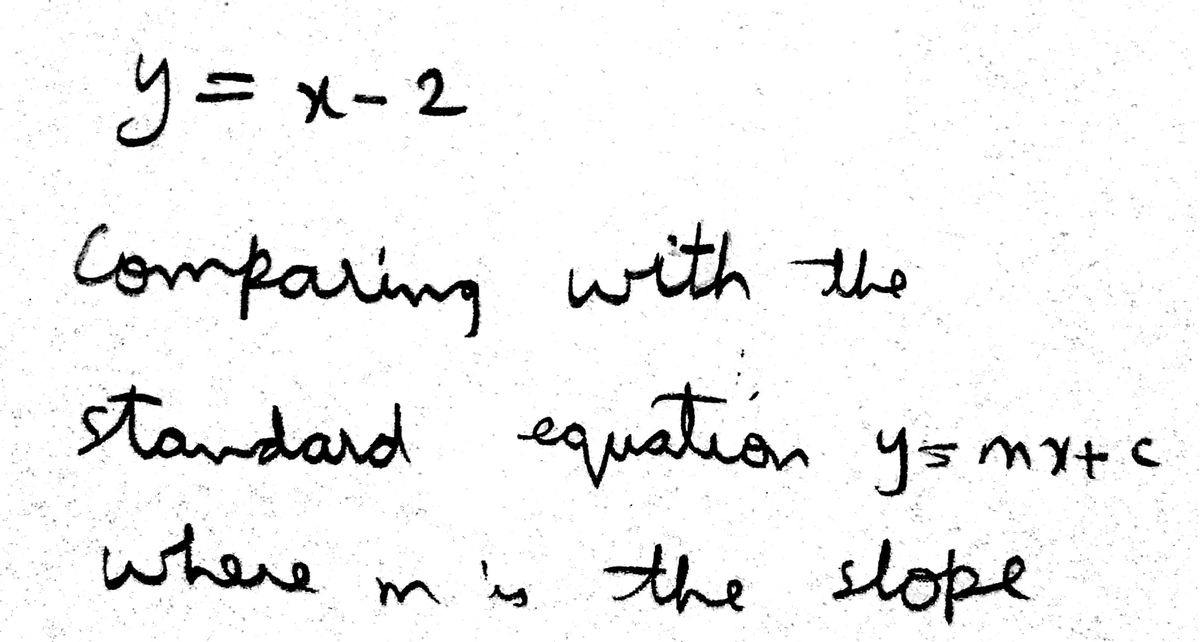 y = x - 2
Comparing with the
standard equation y = mx + c
where m is the slope